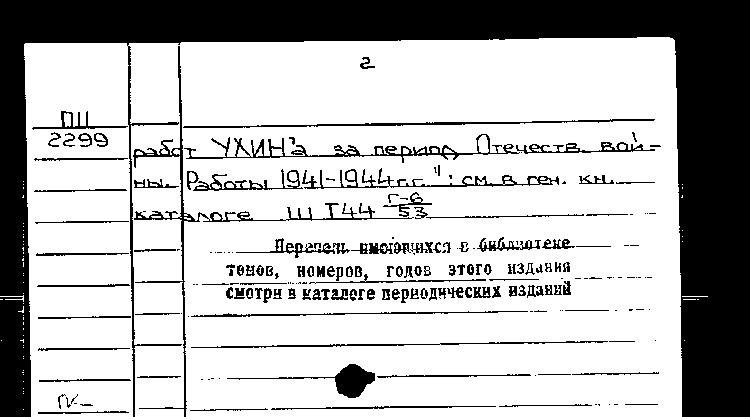 2
ПЦ
2299
работ УХИН'а за период Отечеств. вой-
ны. Работы 1941-1944 г.г.": см. в ген. кн.
каталоге Ш Т44 Г-6/53
Перечень имеющихся в библиотеке
томов, номеров, годов этого издания
смотри в каталоге периодических изданий